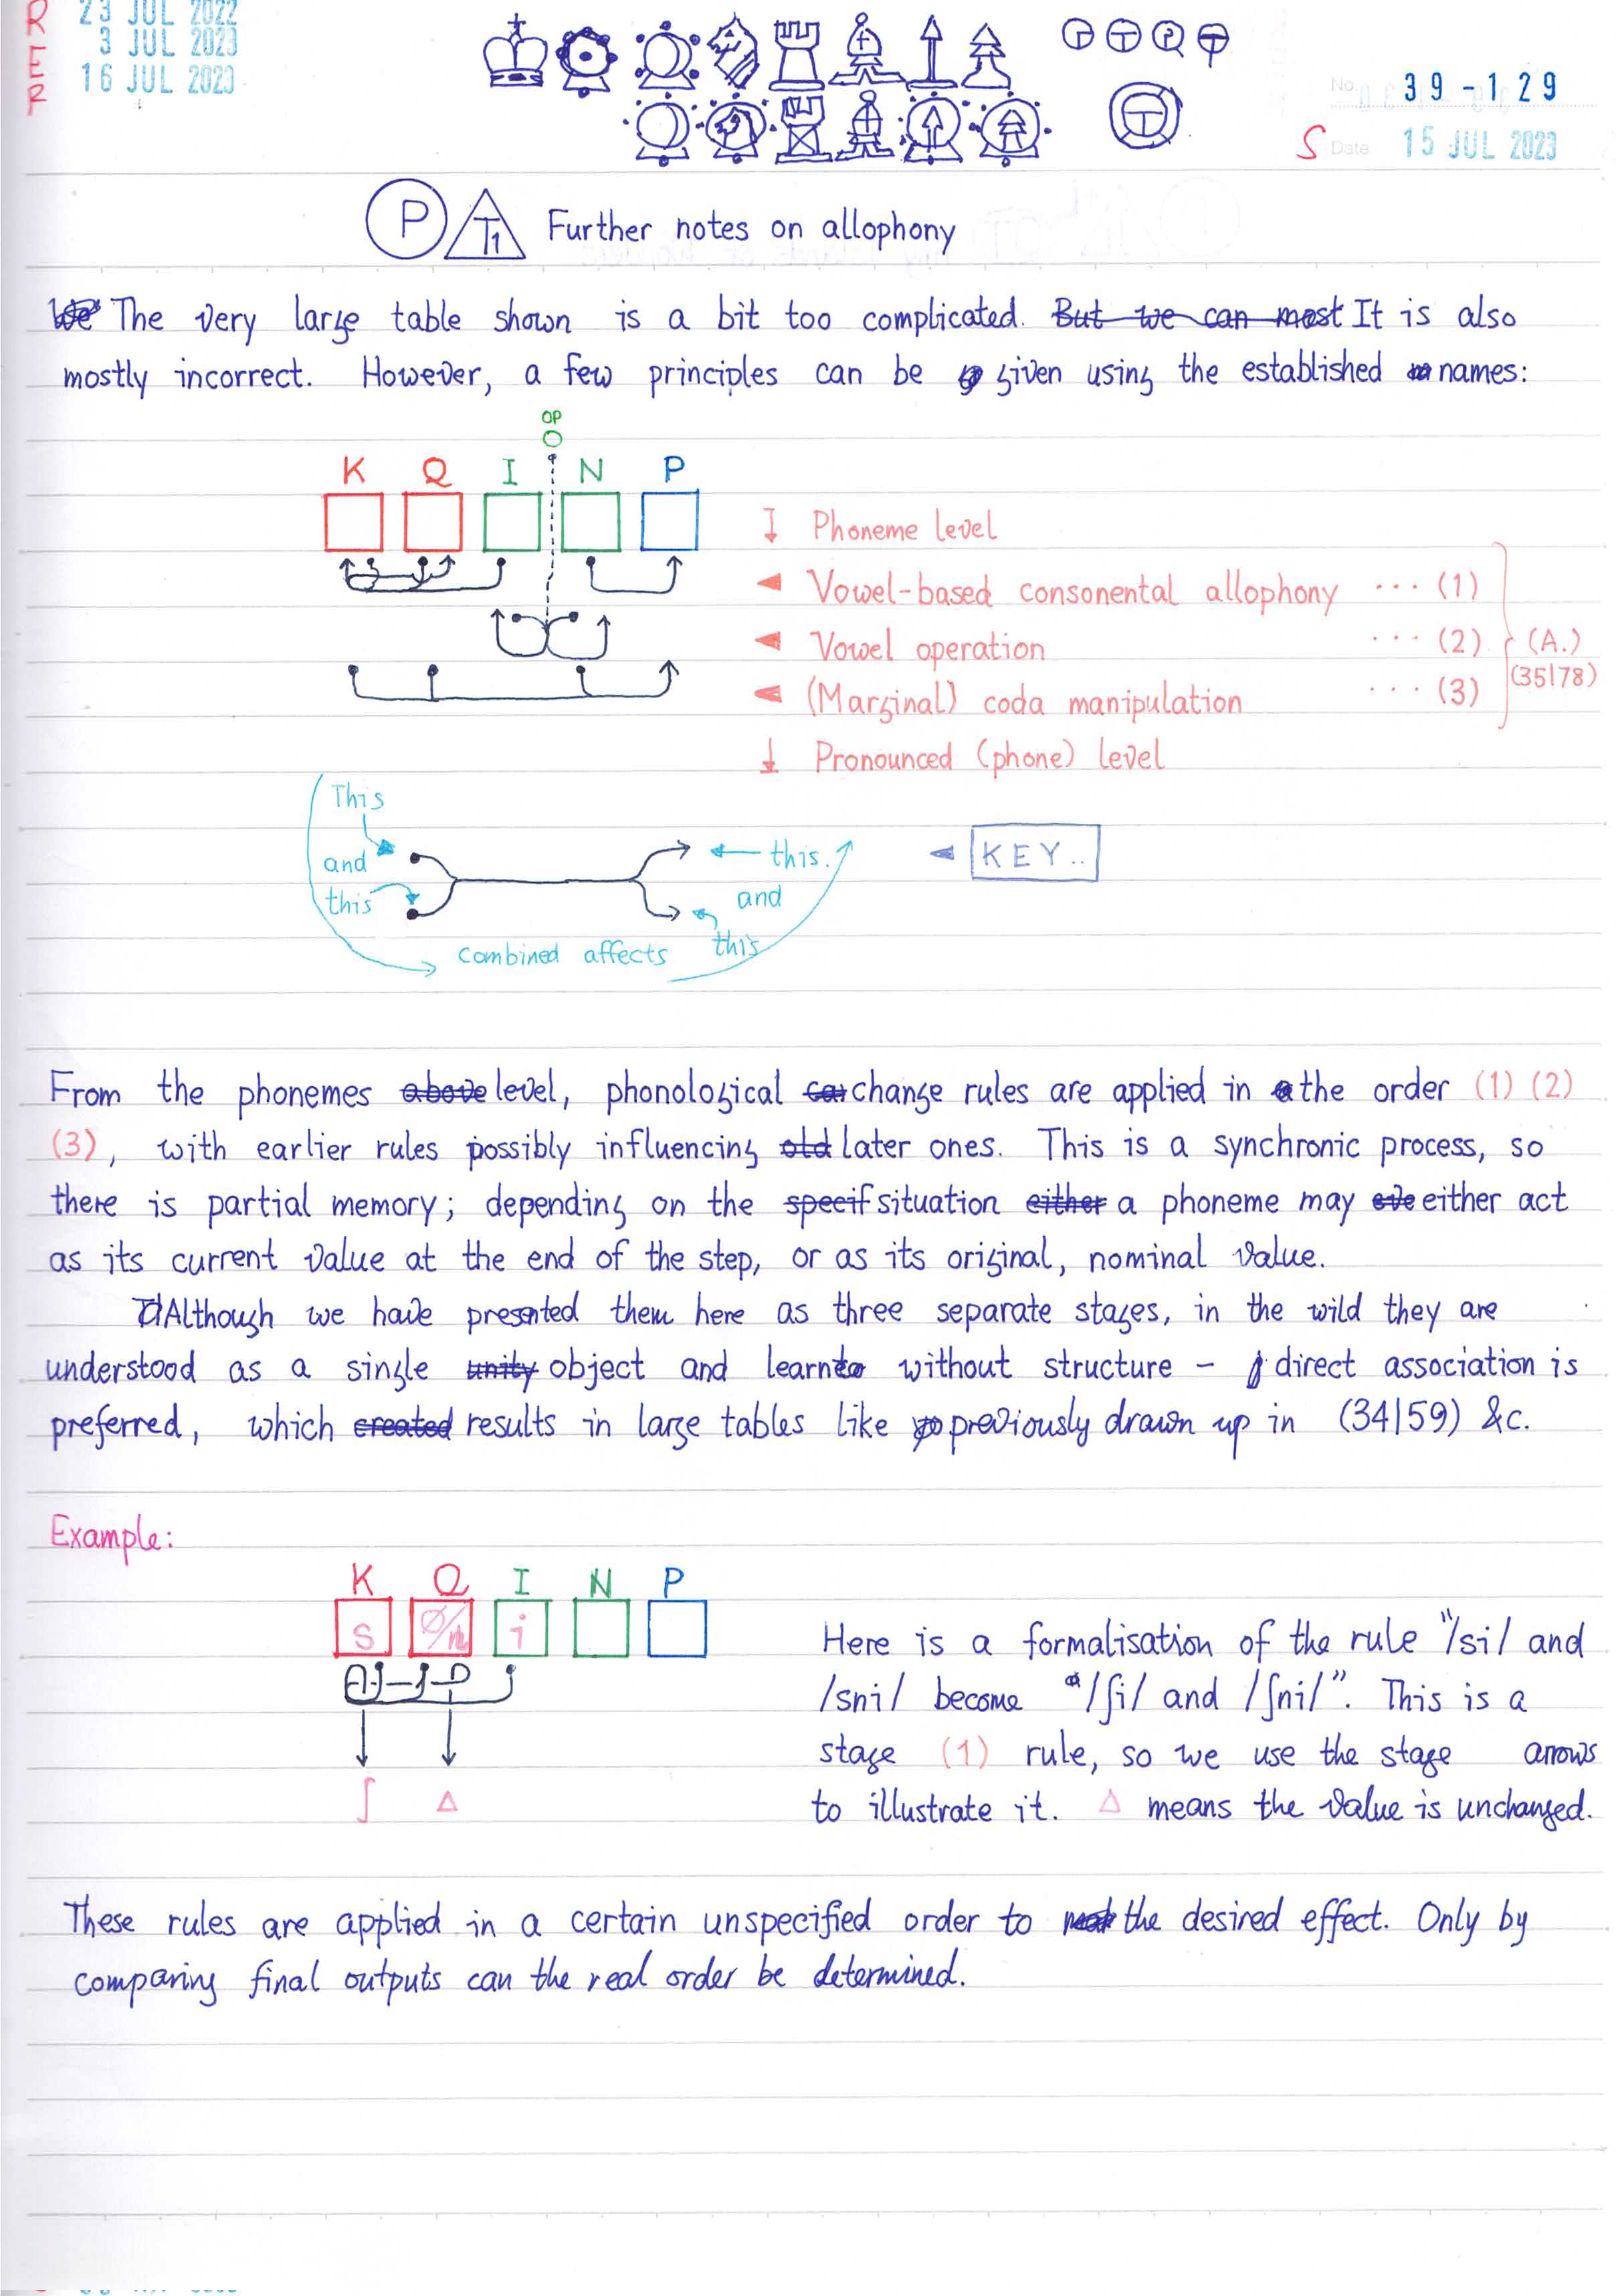 R
E
R
23 JUL 2022
3 JUL 2023
16 JUL 2023
No. 39-129
S Date 15 JUL 2023
P T1 Further notes on allophony
The very large table shown is a bit too complicated. But we can most It is also
mostly incorrect. However, a few principles can be given using the established names:
OP
K Q I N P
Phoneme level
Vowel-based consonental allophony ... (1)
Vowel operation ... (2)
(Marginal) coda manipulation ... (3)
(A.)
(35178)
Pronounced (phone) level
This
and
this
combined affects
this.
and
this
KEY..
From the phonemes above level, phonological change rules are applied in the order (1) (2)
(3), with earlier rules possibly influencing old later ones. This is a synchronic process, so
there is partial memory; depending on the specif situation either a phoneme may either act
as its current value at the end of the step, or as its original, nominal value.
Although we have presented them here as three separate stages, in the wild they are
understood as a single unity object and learn without structure – direct association is
preferred, which created results in large tables like previously drawn up in (34159) &c.
Example:
K Q I N P
s ∅/n i
ʃ Δ
Here is a formalisation of the rule "/si/ and
/sni/ become /ʃi/ and /ʃni/". This is a
stage (1) rule, so we use the stage arrows
to illustrate it. Δ means the value is unchanged.
These rules are applied in a certain unspecified order to the desired effect. Only by
comparing final outputs can the real order be determined.